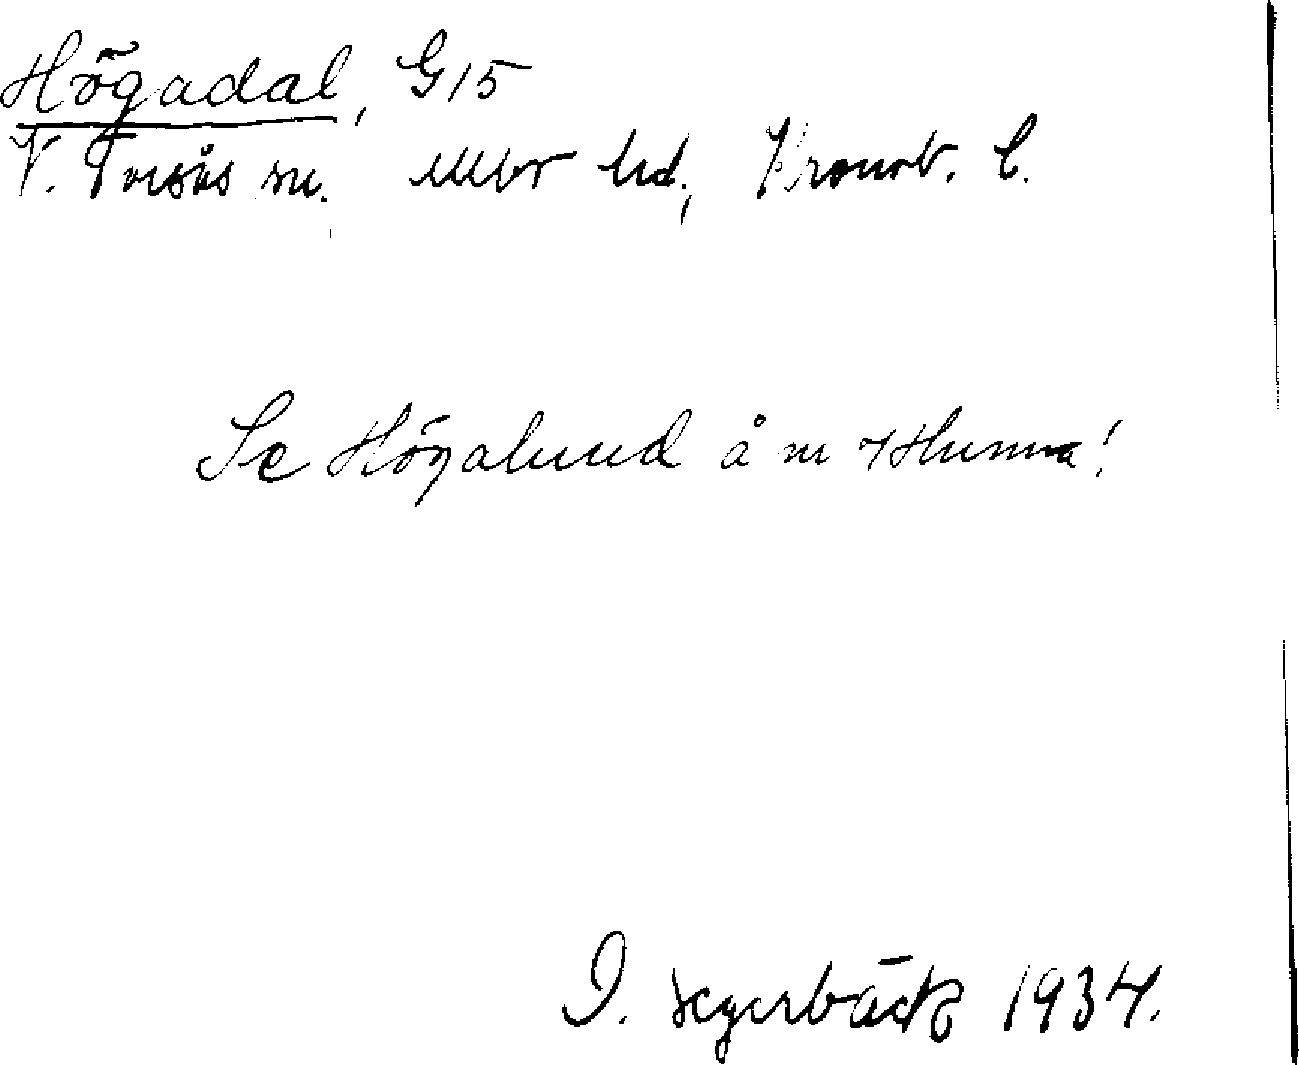 Högadal, G15
V. Torsås sn. Allbo hd, Kronob. l.
Se Högalund å m Hunna!
I. Segerbäck 1934.